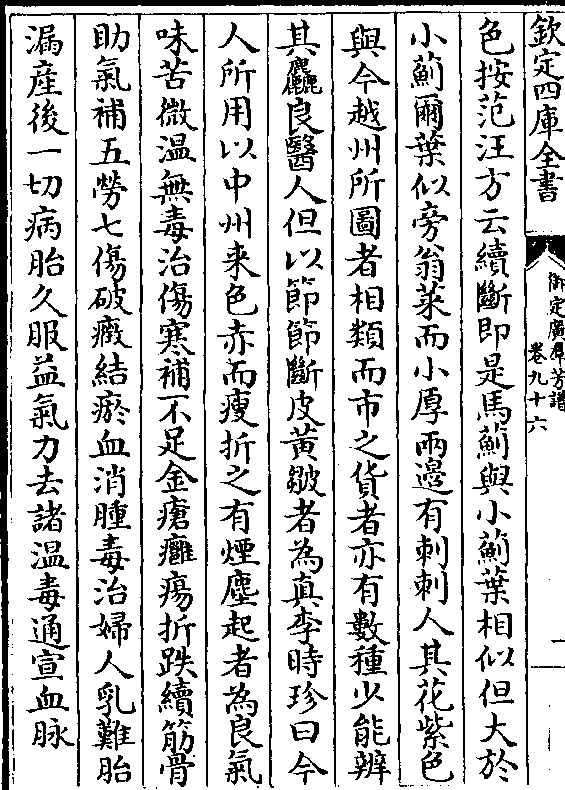 欽定四庫全書
御定廣羣芳譜
卷九十六
色按范汪方云續斷即是馬薊與小薊葉相似但大於
小薊爾葉似旁翁菜而小厚兩邊有刺刺人其花紫色
與今越州所圖者相類而市之貨者亦有數種少能辨
其麤良醫人但以節節斷皮黃皺者為真李時珍曰今
人所用以中州来色赤而瘦折之有煙塵起者為良氣
味苦微溫無毒治傷寒補不足金瘡癰瘍折跌續筋骨
助氣補五勞七傷破癥結瘀血消腫毒治婦人乳難胎
漏產後一切病胎久服益氣力去諸溫毒通宣血脉